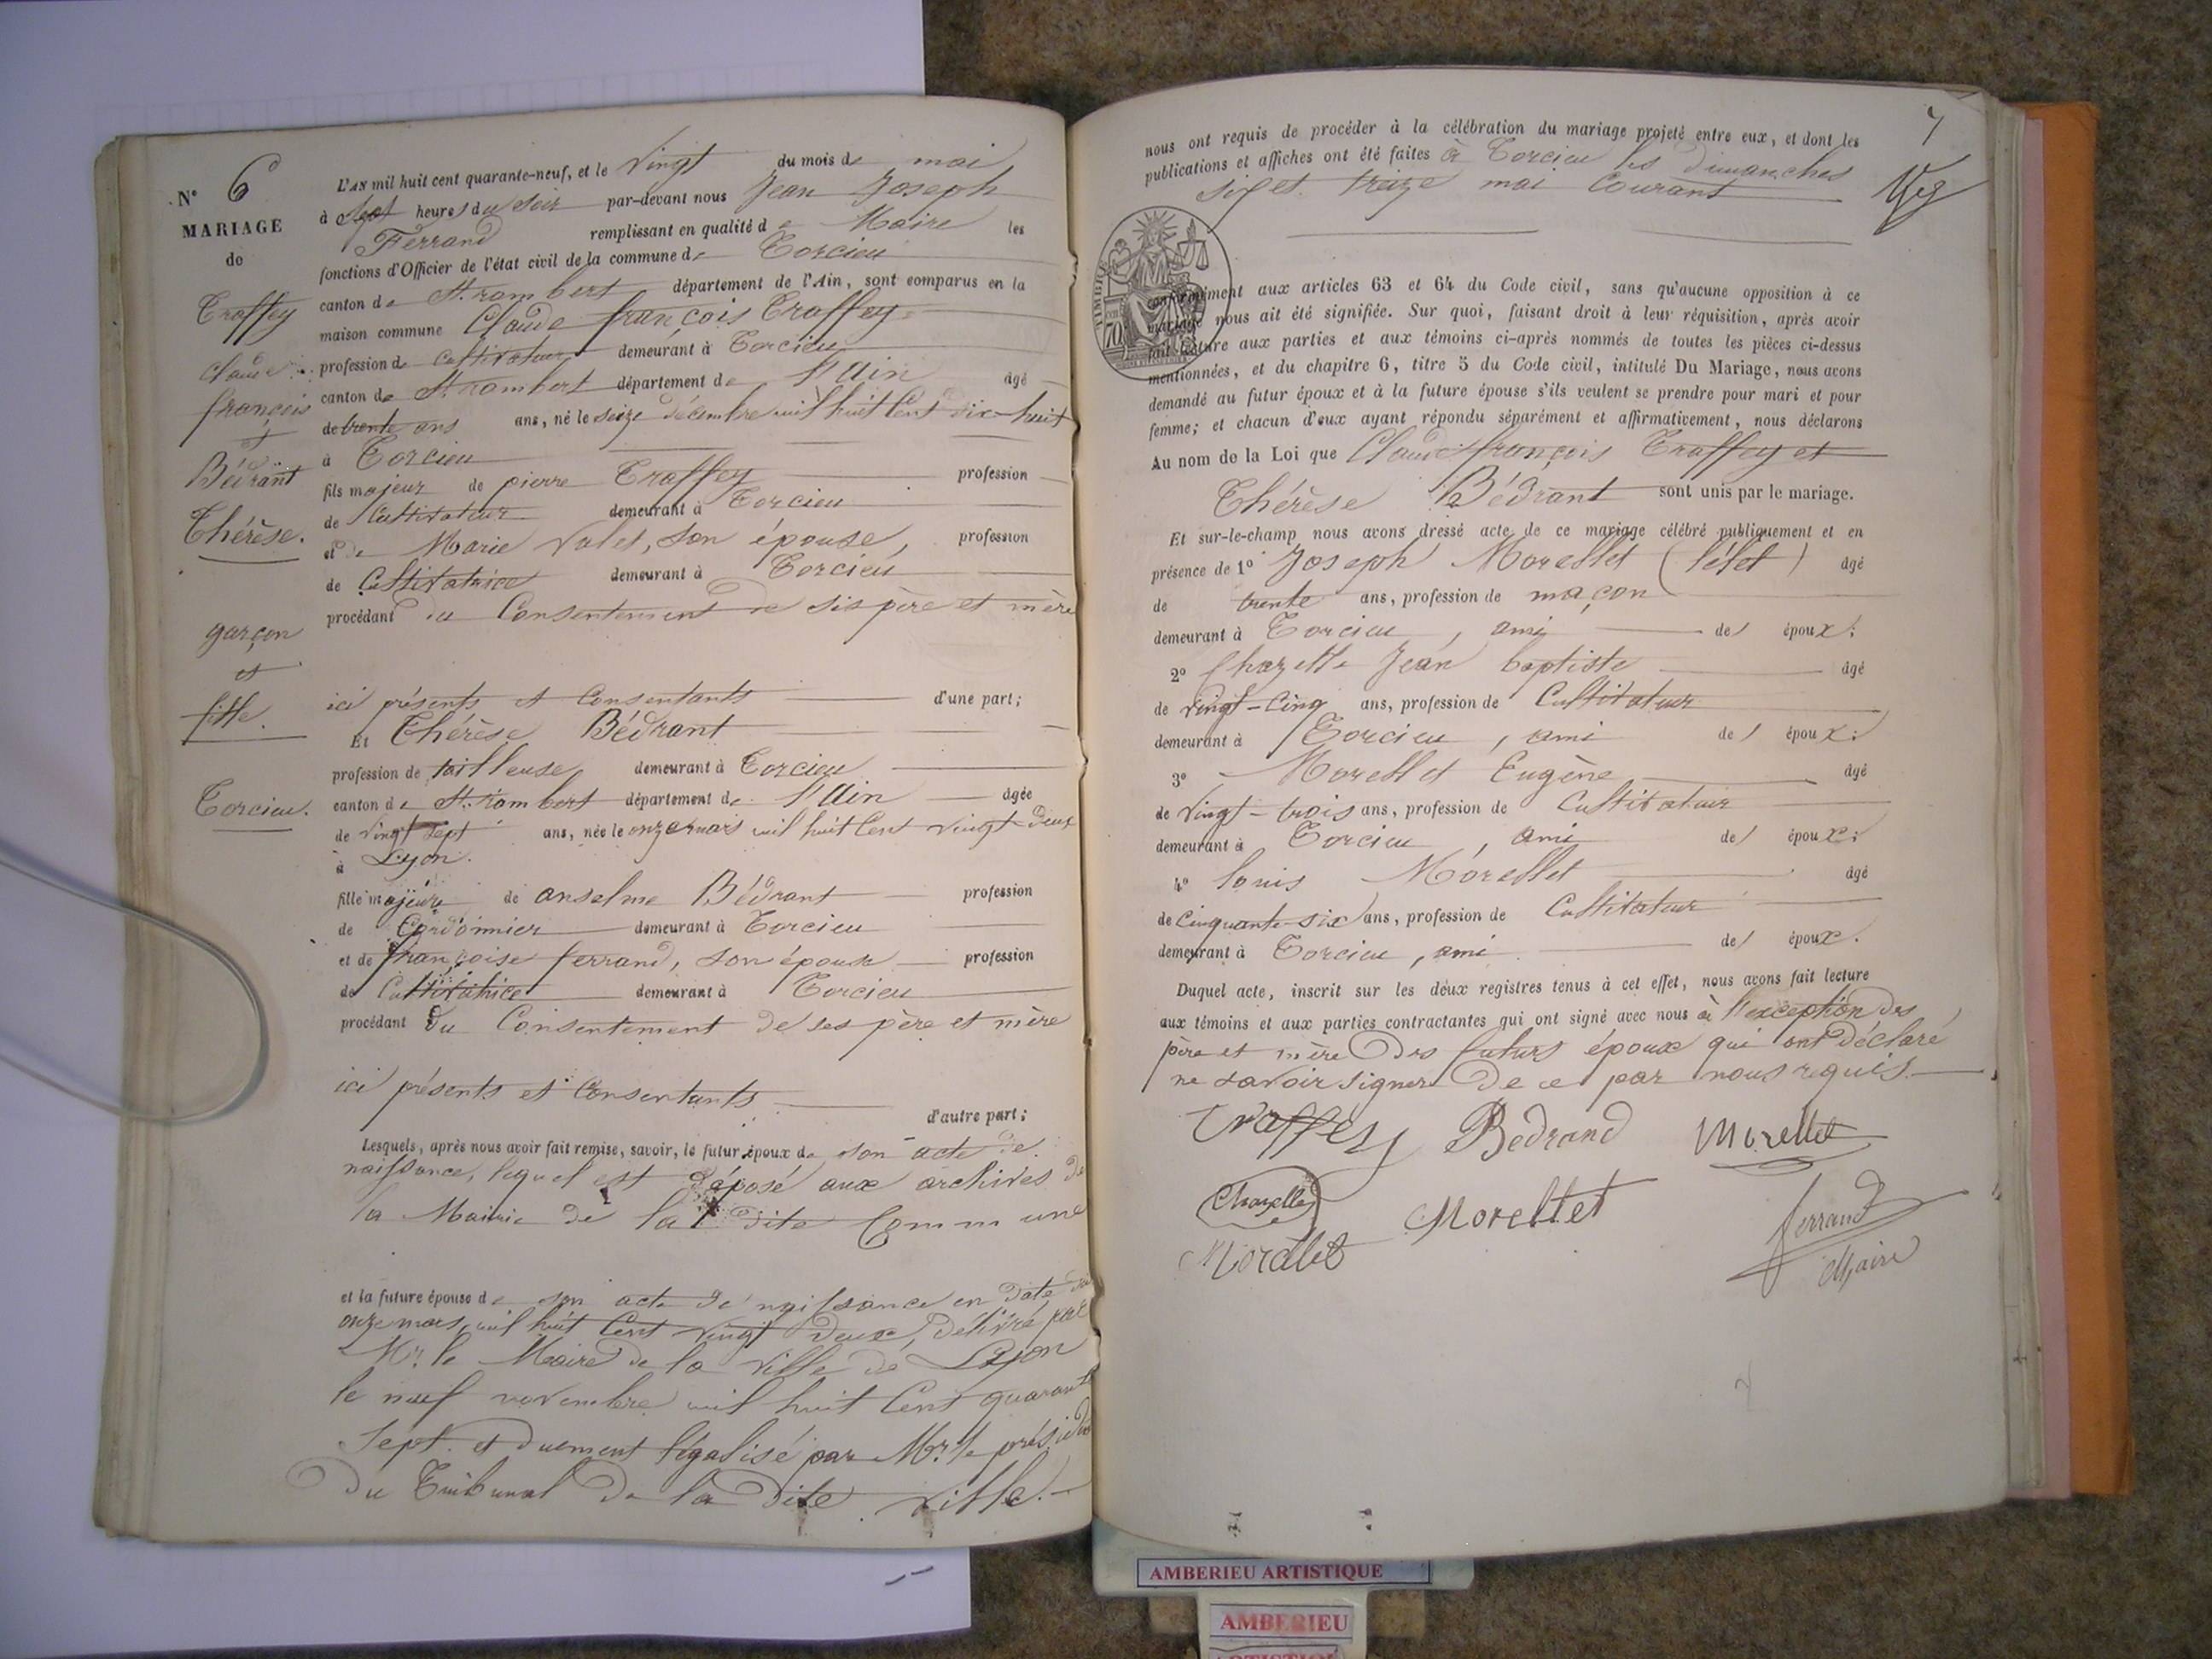 N° 6
MARIAGE
de
Traffey
Claude
françois
et
Bédrant
Thérèse.
garçon
et
fille.
Torcieu.
L'AN mil huit cent quarante-neuf, et le vingt du mois de mai
à sept heures du soir par-devant nous Jean Joseph
Ferrand remplissant en qualité de Maire les
fonctions d'Officier de l'état civil de la commune de Torcieu
canton de St. rambert département de l'Ain, sont comparus en la
maison commune Claude françois Traffey
profession de Cultivateur demeurant à Torcieu
canton de St. rambert département de l'Ain âgé
de trente ans ans, né le seize décembre mil huit Cent dix-huit
à Torcieu
fils majeur de pierre Traffey profession
de Cultivateur demeurant à Torcieu
et de Marie Valet, son épouse, profession
de Cultivatrice demeurant à Torcieu
procédant du Consentement de sis père et mère
ici présents et Consentants d'une part;
Et Thérèse Bédrant
profession de tailleuse demeurant à Torcieu
canton de St. rambert département de l'Ain âgée
de vingt sept ans, née le onze mars mil huit Cent vingt-deux
à Lyon.
fille majeure de anselme Bédrant profession
de Cordonnier demeurant à Torcieu
et de françoise ferrand, son épouse profession
de Cultivatrice demeurant à Torcieu
procédant du Consentement de ses père et mère
ici présents et Consentants d'autre part;
Lesquels, après nous avoir fait remise, savoir, le futur époux de son acte de
naissance, lequel est déposé aux archives de
la Mairie de la dite Commune
et la future épouse de son acte de naissance en date du
onze mars mil huit Cent vingt deux, délivré par
Mr. le Maire de la ville de Lyon
le neuf novembre mil huit Cent quarante
sept. et duement légalisé par Mr. le président
du Tribunal de la dite ville.
7
nous ont requis de procéder à la célébration du mariage projeté entre eux, et dont les
publications et affiches ont été faites à Torcieu les dimanches
six et treize mai Courant
TIMBRE
70
conformément aux articles 63 et 64 du Code civil, sans qu'aucune opposition à ce
mariage nous ait été signifiée. Sur quoi, faisant droit à leur réquisition, après avoir
fait lecture aux parties et aux témoins ci-après nommés de toutes les pièces ci-dessus
mentionnées, et du chapitre 6, titre 5 du Code civil, intitulé Du Mariage, nous avons
demandé au futur époux et à la future épouse s'ils veulent se prendre pour mari et pour
femme; et chacun d'eux ayant répondu séparément et affirmativement, nous déclarons
Au nom de la Loi que Claude françois Traffey et
Thérèse Bédrant sont unis par le mariage.
Et sur-le-champ nous avons dressé acte de ce mariage célébré publiquement et en
présence de 1° Joseph Morellet (lélet) âgé
de trente ans, profession de maçon
demeurant à Torcieu, ami des époux;
2° Chazelle Jean baptiste âgé
de vingt-cinq ans, profession de Cultivateur
demeurant à Torcieu, ami des époux;
3° Morellet Eugène âgé
de vingt-trois ans, profession de Cultivateur
demeurant à Torcieu, ami des époux;
4° louis Morellet âgé
de cinquante-six ans, profession de Cultivateur
demeurant à Torcieu, ami des époux.
Duquel acte, inscrit sur les deux registres tenus à cet effet, nous avons fait lecture
aux témoins et aux parties contractantes qui ont signé avec nous à l'exception des
père et mère des futurs époux qui ont déclaré
ne savoir signer de ce par nous requis.
Traffey Bedrand Morellet
Chazelle Morellet ferrand
Morellet Maire
AMBERIEU ARTISTIQUE
AMBERIEU
ARTISTIQUE